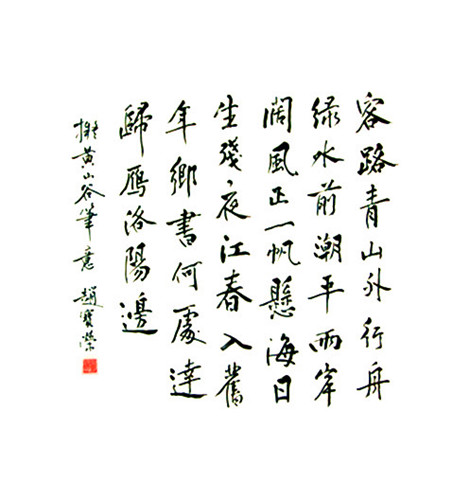 客路青山外行舟
綠水前潮平兩岸
闊風正一帆懸海日
生殘夜江春入舊
年鄉書何處達
歸雁洛陽邊
擬黃山谷筆意 趙寶榮